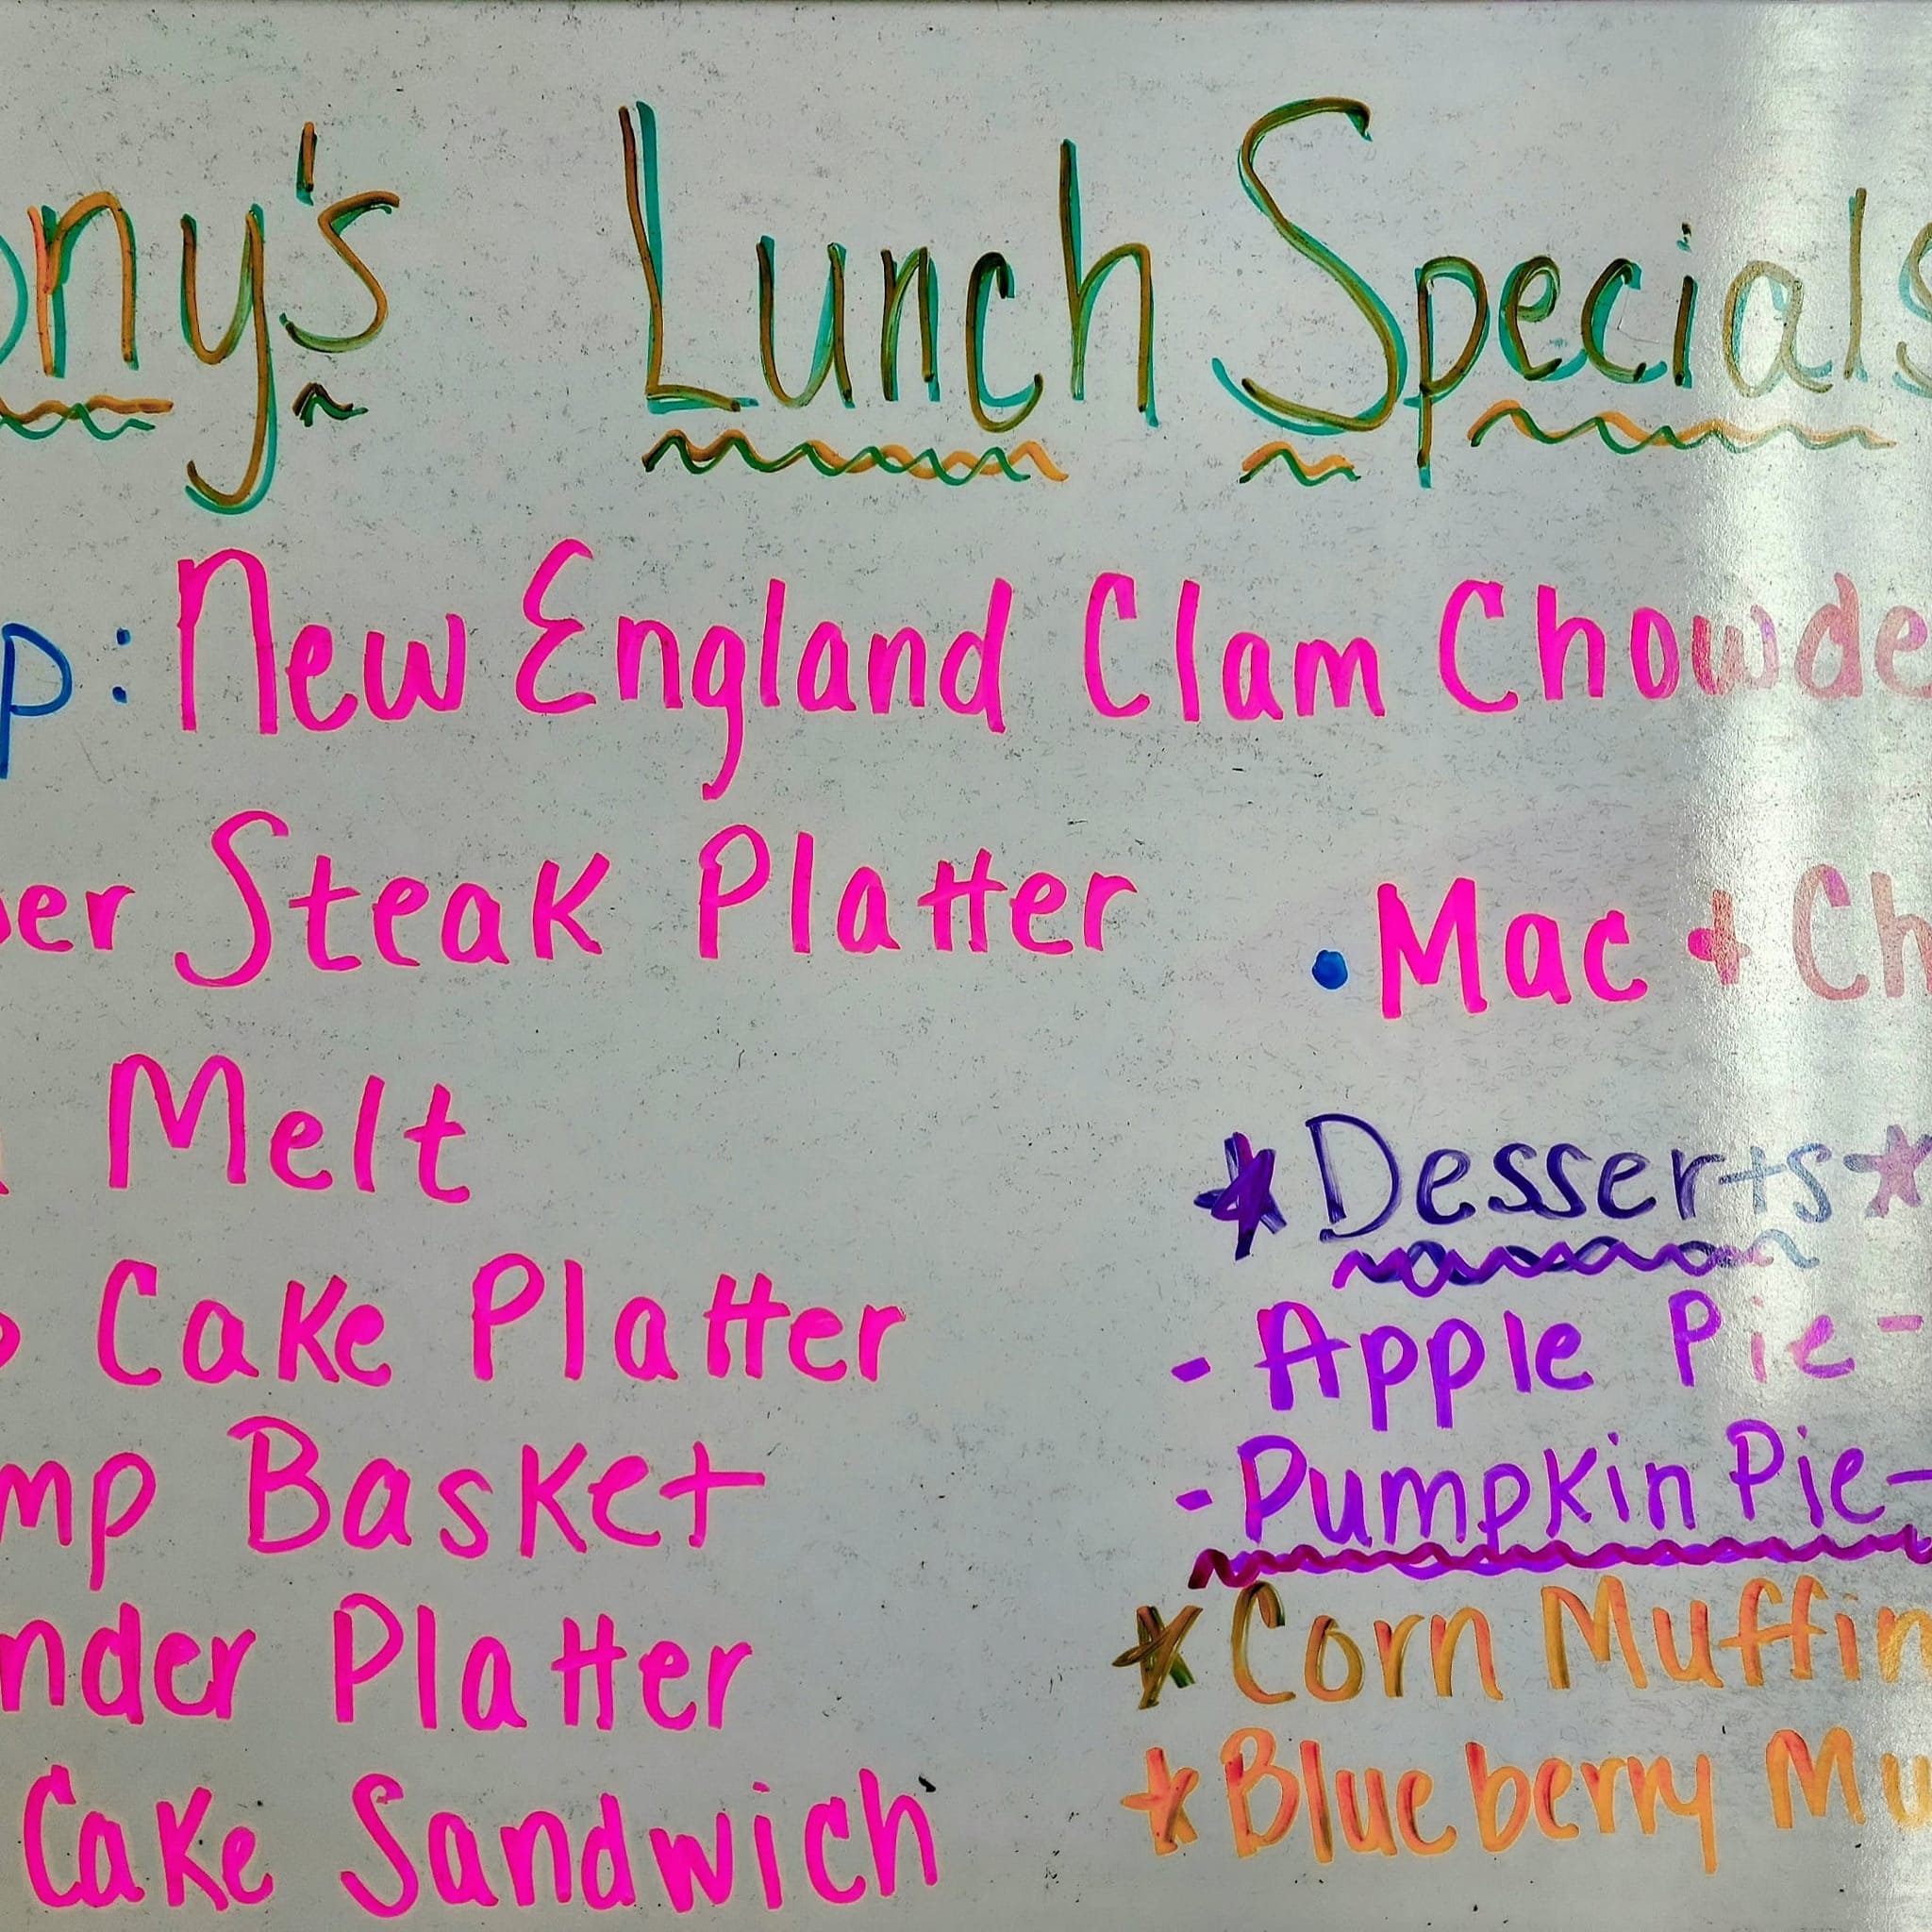 ony's Lunch Specials
p: New England Clam Chowde
er Steak Platter
Melt
Cake Platter
mp Basket
nder Platter
Cake Sandwich
• Mac + Ch
* Desserts *
- Apple Pie -
- Pumpkin Pie -
* Corn Muffin
* Blueberry Mu